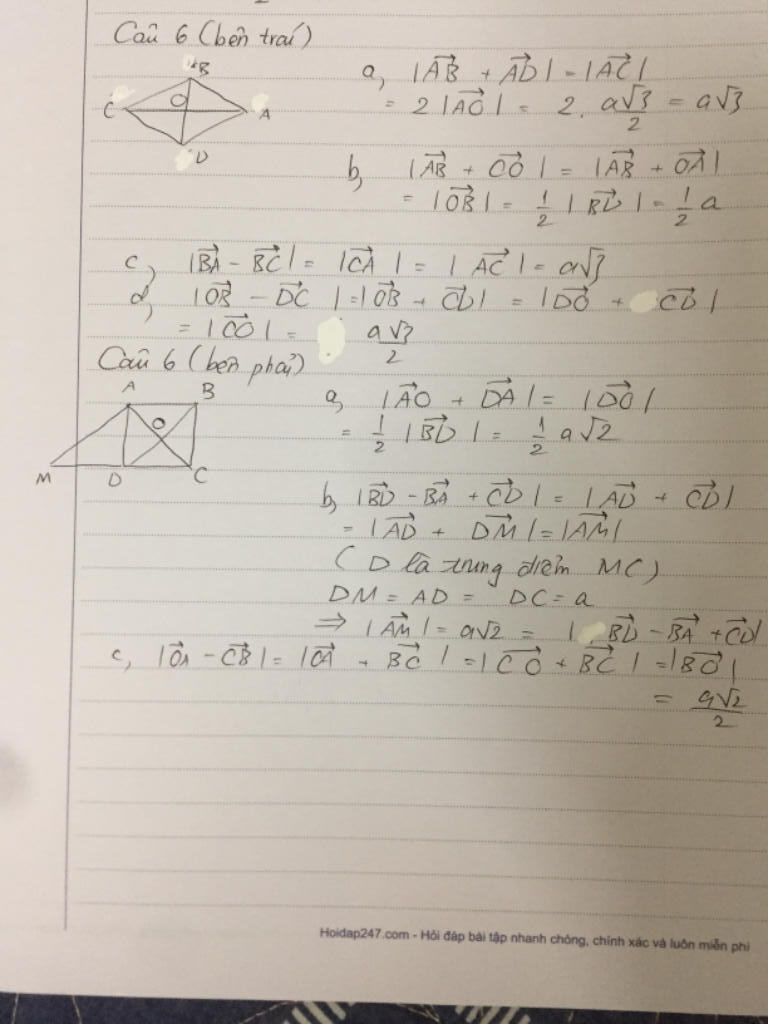 Câu 6 (bên trái)
B
O
C
A
D
a, |AB→ + AD→| = |AC→|
= 2|AO→| = 2. a√3/2 = a√3
b, |AB→ + CO→| = |AB→ + OA→|
= |OB→| = 1/2 |BD→| = 1/2 a
c, |BA→ - BC→| = |CA→| = |AC→| = a√3
d, |OB→ - DC→| = |OB→ + CD→| = |DO→ + CD→|
= |CO→| = a√3/2
Câu 6 (bên phải)
A B
O
M D C
a, |AO→ + DA→| = |DO→|
= 1/2 |BD→| = 1/2 a√2
b, |BD→ - BA→ + CD→| = |AD→ + CD→|
= |AD→ + DM→| = |AM→|
(D là trung điểm MC)
DM = AD = DC = a
⇒ |AM→| = a√2 = | BD→ - BA→ + CD→|
c, |OA→ - CB→| = |OA→ + BC→| = |CO→ + BC→| = |BO→|
= a√2/2
Hoidap247.com - Hỏi đáp bài tập nhanh chóng, chính xác và luôn miễn phí